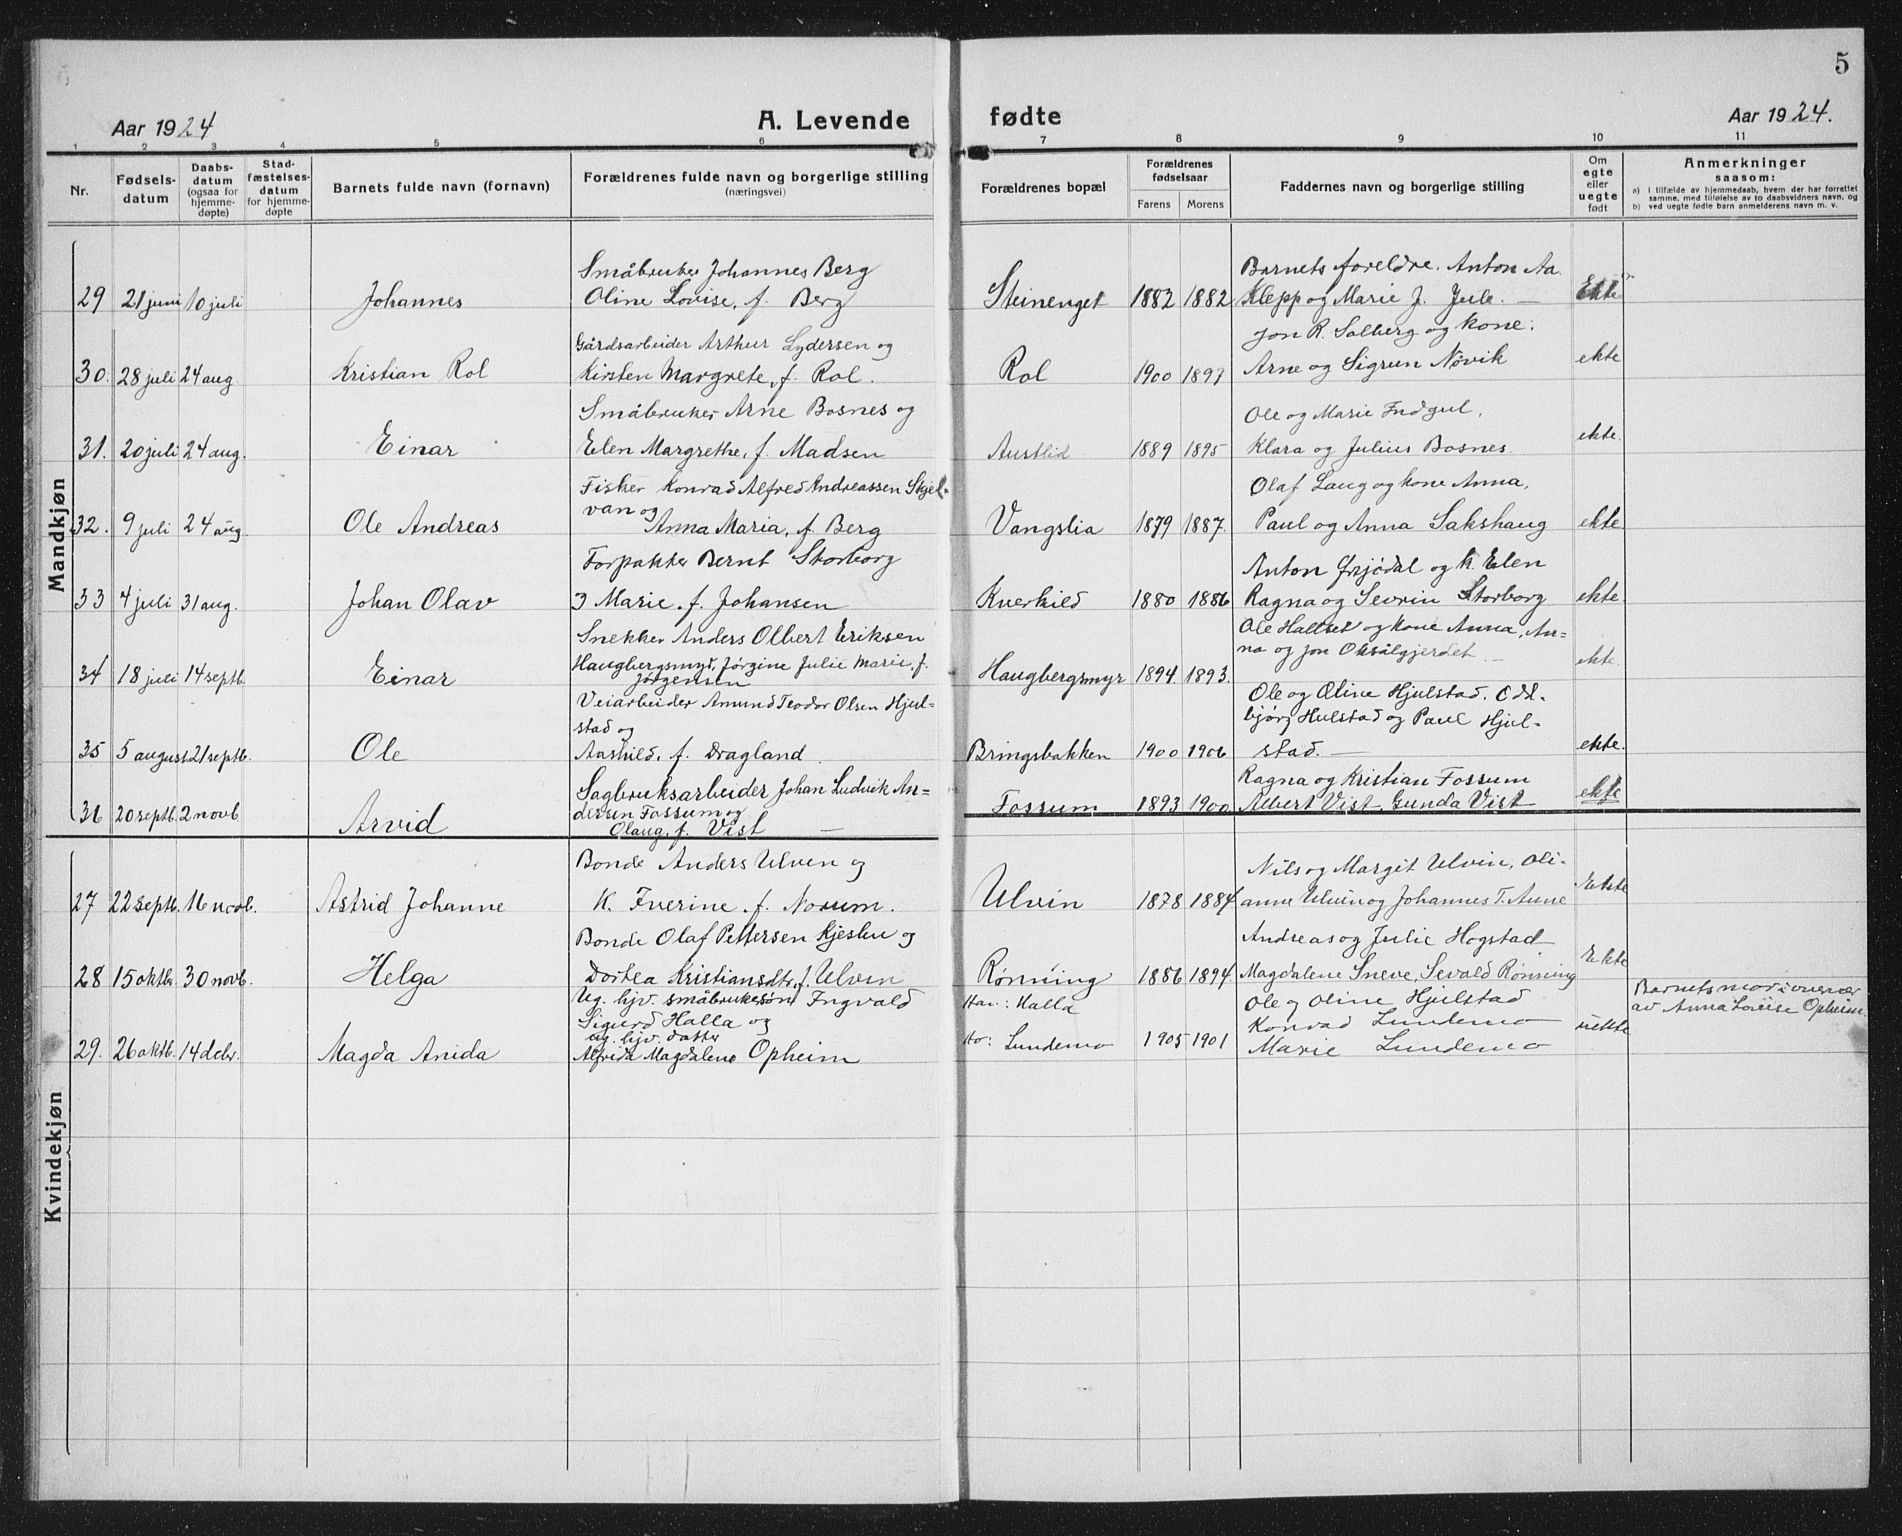 5
Aar 1924
A. Levende fødte
Aar 1924.
1 2 3 4 5 6 7 8 9 10 11
Nr.
Fødsels-
datum
Daabs-
datum
(ogsaa for
hjemme-
døpte)
Stad-
fæstelses-
datum
for hjemme-
døpte
Barnets fulde navn (fornavn)
Forældrenes fulde navn og borgerlige stilling
(næringsvei)
Forældrenes bopæl
Forældrenes
fødselsaar
Farens Morens
Faddernes navn og borgerlige stilling
Om
egte
eller
uegte
født
Anmerkninger
saasom:
a) i tilfælde av hjemmedaab, hvem der har forrettet
samme, med tilføielse av to daabsvidners navn, og
b) ved uegte fødte barn anmelderens navn m. v.
Mandkjøn
29 21 juni 10 juli Johannes
Småbruker Johannes Berg
Oline Lovise, f. Berg
Steinenget 1882 1882
Barnets foreldre. Anton Aa.
Klepp og Marie J. Jule. —
Jon R. Salberg og kone.
Ekte
30. 28 juli 24 aug. Kristian Rol
Gårdsarbeider Arthur Lydersen og
Kirsten Margrete, f. Rol.
Rol 1900 1897
Arne og Sigrun Nøvik
ekte
31. 20 juli 24 aug. Einar
Småbruker Arne Bosnes og
Elen Margrethe, f. Madsen
Austlid 1889 1895
Ole og Marie Indgul,
Klara og Julius Bosnes.
ekte.
32. 9 juli 24 aug Ole Andreas
Fisker Konrad Alfred Andreassen Skjel-
van og
Anna Maria, f. Berg
Vangslia 1879 1887.
Olaf Laug og kone Anna,
Paul og Anna Sakshaug
ekte
33 4 juli 31 aug. Johan Olav
Forpakter Bernt Storborg
Marie, f. Johansen
Kverkild 1880 1886
Anton og k. Elen
Ragna og Sevrin Storborg
ekte.
34 18 juli 14 septb. Einar
Snekker Anders Olbert Eriksen
Haugbergsmyr, Jørgine Julie Marie, f.
Jørgensen
Haugbergsmyr 1894 1893.
Ole Hallset og kone Anna, An-
na og Jon Oksålgjerdet —
ekte.
35 5 august 21 septb. Ole
Veiarbeider Amund Teodor Olsen Hjul-
stad og
Aashild, f. Dragland.
Bringsbakken 1900 1906
Ole og Oline Hjulstad. Odd-
bjørg Hulstad og Paul Hjul-
stad. —
ekte.
36 20 septb. 2 novb Arvid
Sagbruksarbeider Johan Ludvik An-
dersen Fossum og
Olaug, f. Vist —
Fossum 1893 1900
Ragna og Kristian Fossum
Albert Vist, Gunda Vist
ekte
Kvindekjøn
27 22 septb. 16 novb. Astrid Johanne
Bonde Anders Ulven og
K. f. Norum.
Ulvin 1878 1884
Nils og Margit Ulvin, Oli-
anne Ulvin og Johannes T. Aune
Ekte
28 15 oktbr 30 novb. Helga
Bonde Olaf Pettersen Kjeslu og
Dortea Kristiansdtr, f. Ulven
Rønning 1886 1894
Andreas og Julie Hogstad
Magdalene Sneve, Sevald Rønning
Ekte
29. 26 oktb. 14 debr. Magda Anida
Ug. hjv. småbrukersøn Ingvald
Sigurd Halla og
ug. hjv. datter
Alfvida Magdalene Opheim
Han: Halla
Ho: Lundemo 1905 1901
Ole og Oline Hjulstad
Konrad Lundemo
Marie Lundemo
uekte
Barnets mor
av Anna Lovise Opheim.